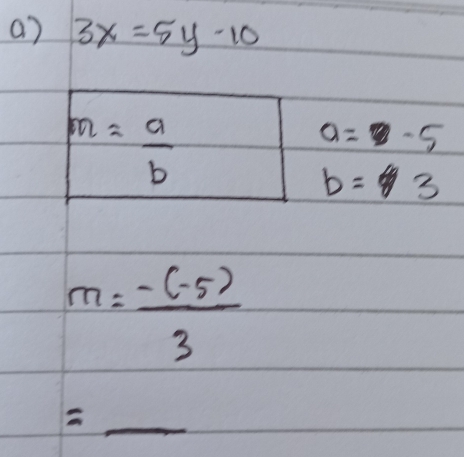 a) 3x = 5y - 10
m = a/b
a = -5
b = 3
m = -(-5)/3
= __